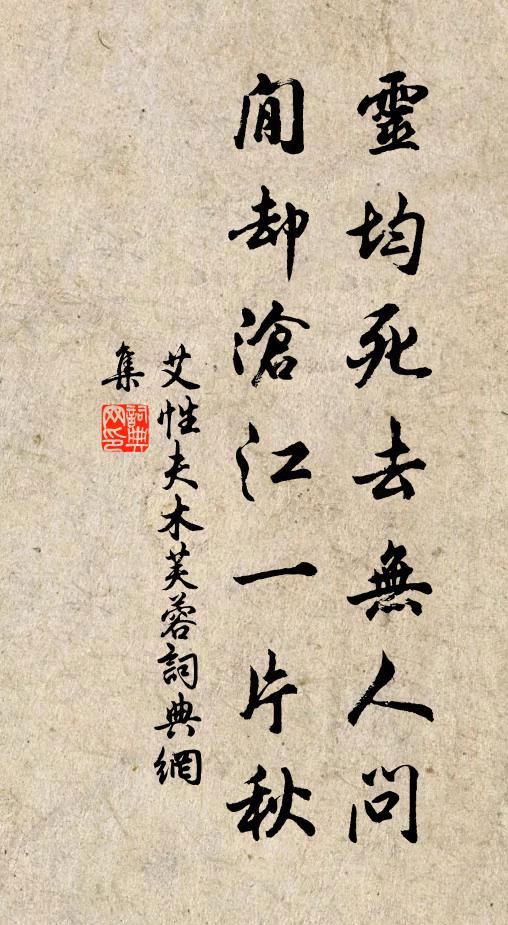 靈均死去無人問
閒却滄江一片秋
艾性夫木芙蓉詞典網
集
詞典網印